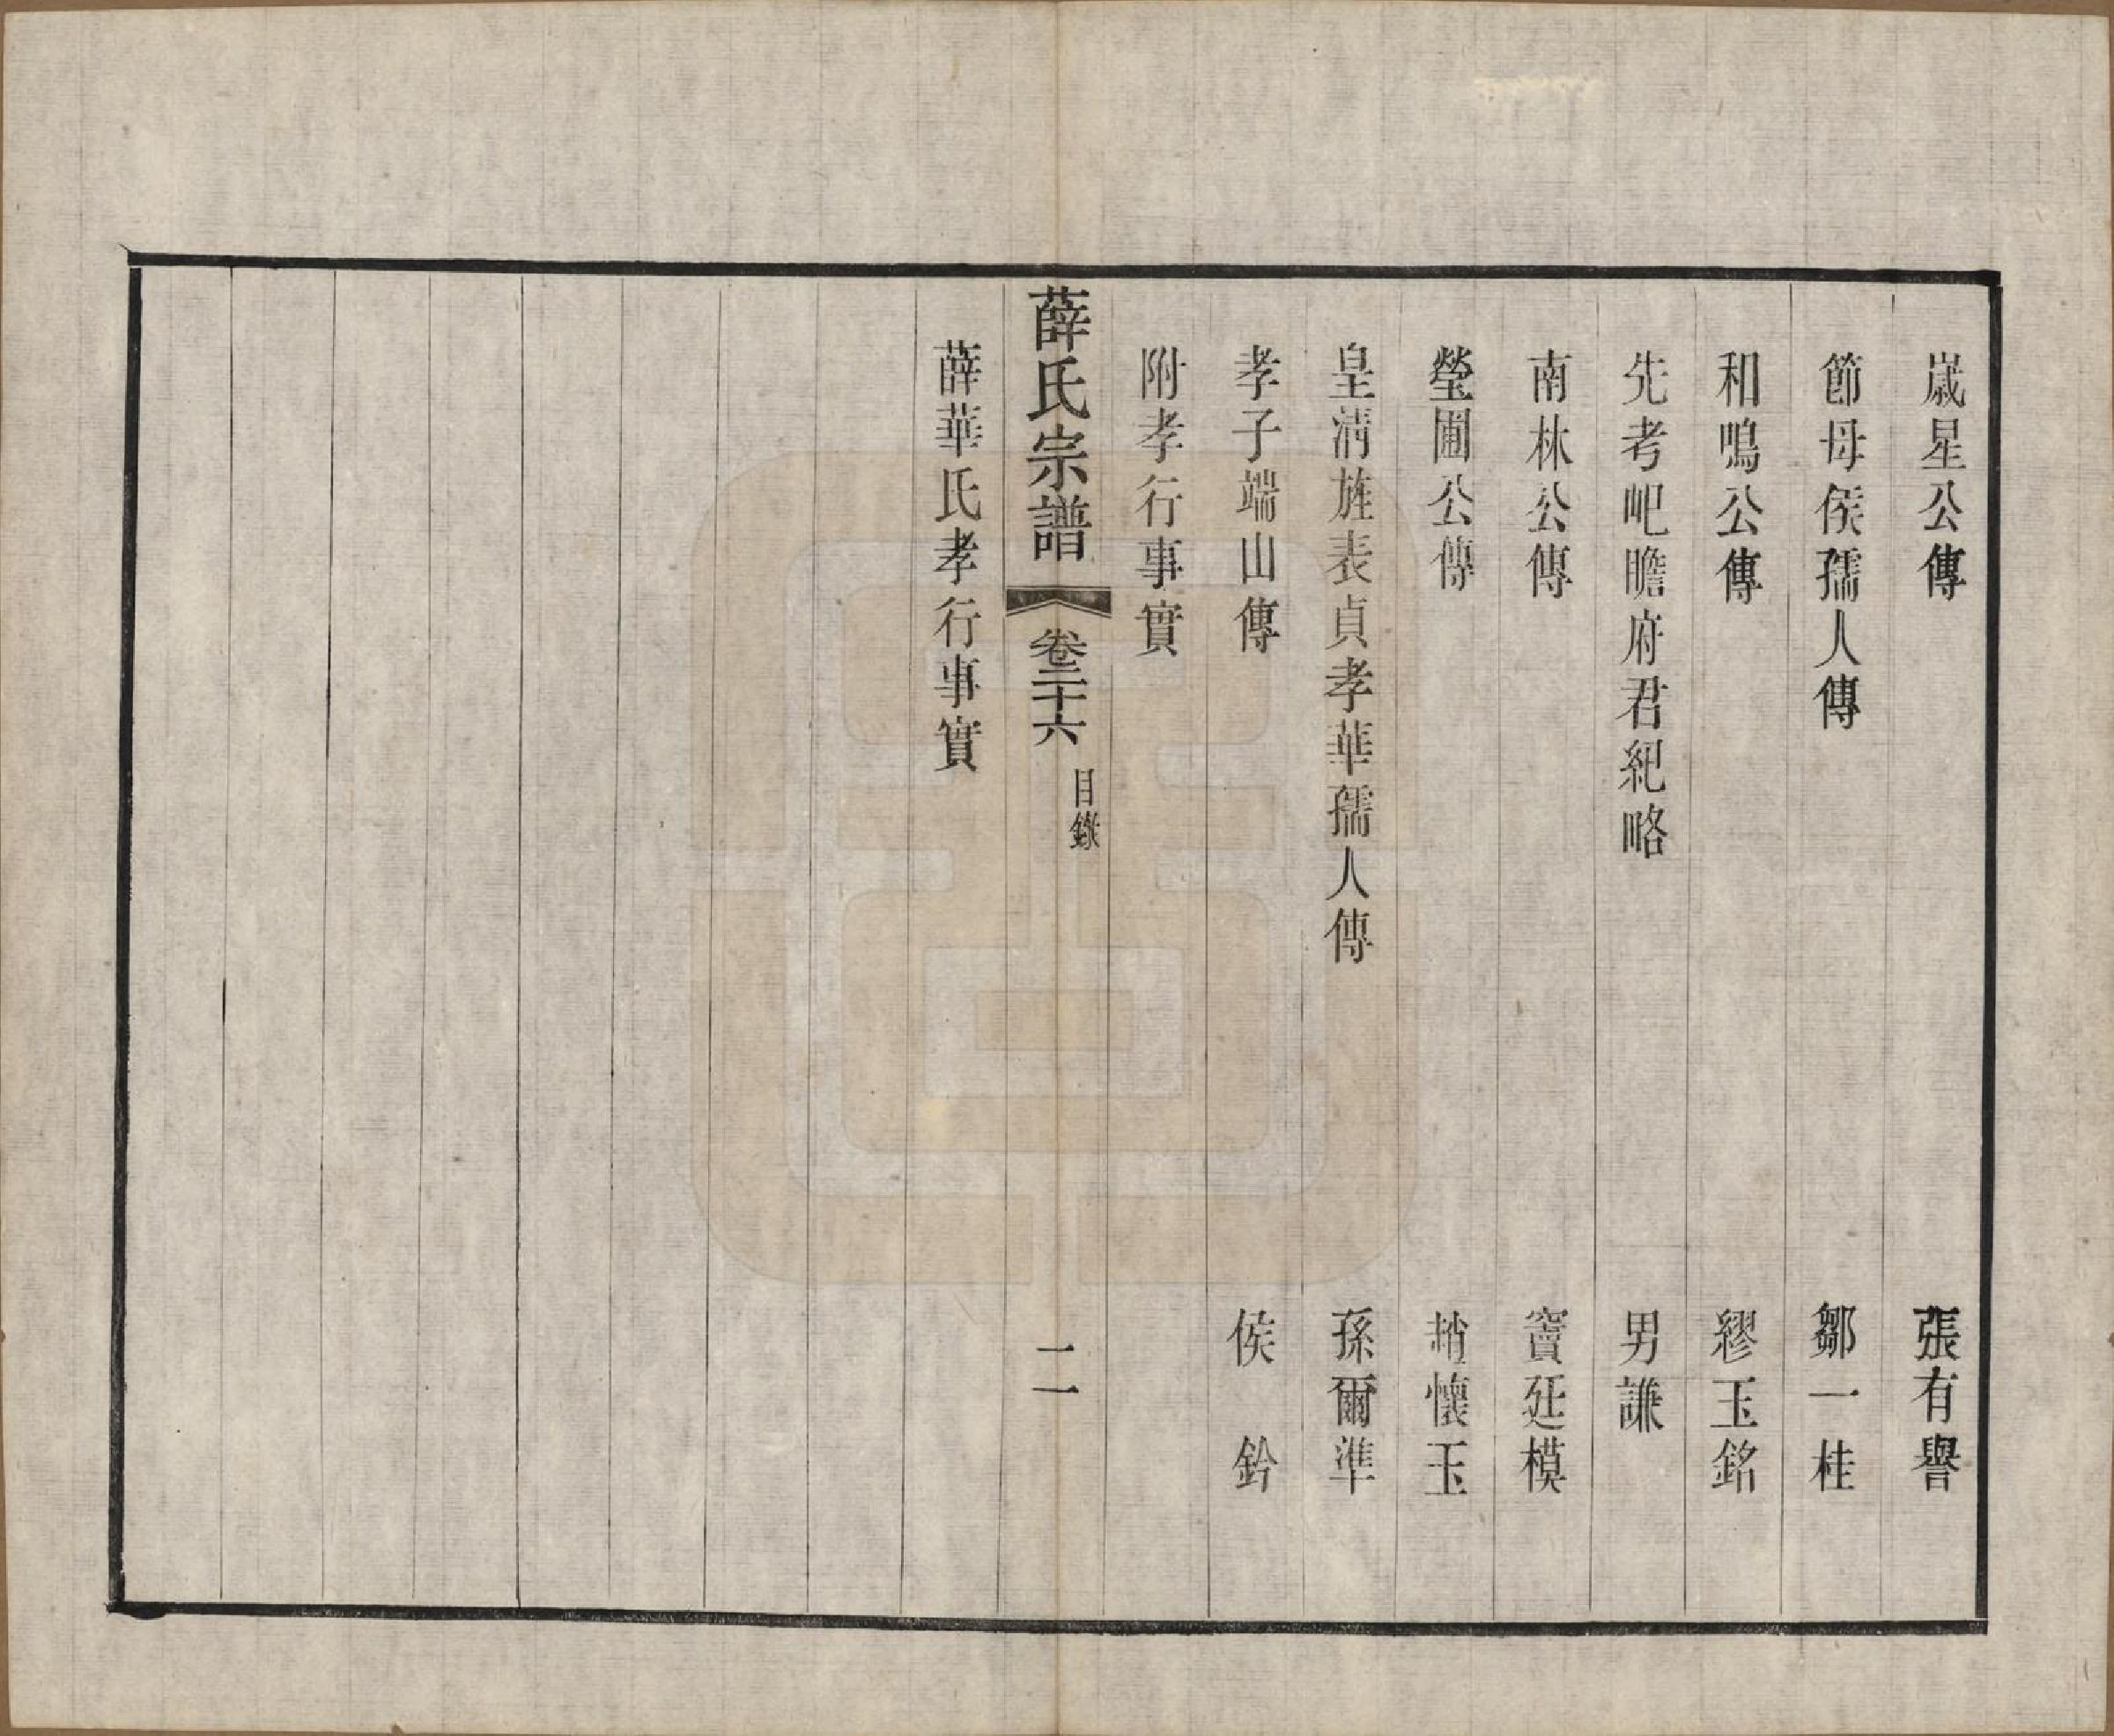 歲星公傳　張有譽
節母侯孺人傳　鄒一桂
和鳴公傳　繆玉銘
先考屺瞻府君紀略　男謙
南林公傳　竇廷模
瑩圃公傳　趙懷玉
皇清旌表貞孝華孺人傳　孫爾準
孝子端山傳　侯鈐
附孝行事實
薛氏宗譜　卷二十六　目錄　二
薛華氏孝行事實